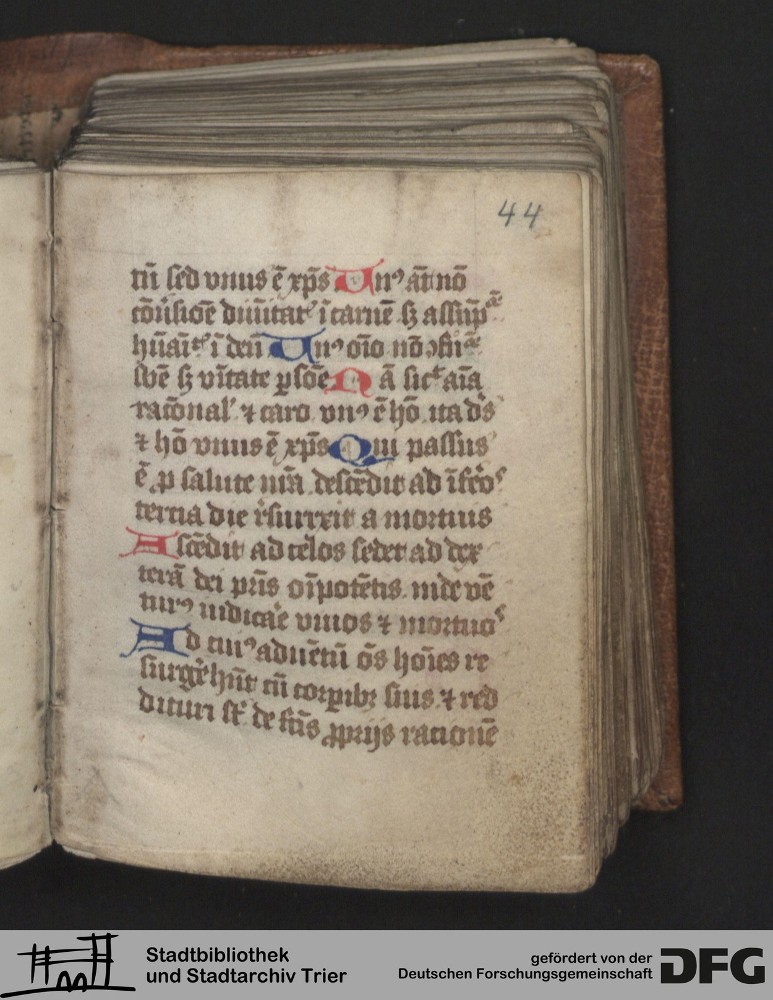 44
tū sed vnus ē xp̄s Vnꝰ aūt nō
cōu̾sioē diuītat᷒ ī carnē sꝫ assūp
hūāit᷒ ī deū Vnꝰ oīo nō ꝯfusi
sbē sꝫ vnītate ꝑsōe Nā sic᷒ aīa
racōnal᷒ ⁊ caro vnꝰ ē hō ita d̄s
⁊ hō vnus ē xp̄s Qui passus
ē ꝓ salute nr̄a descēdit ad īfe᷒os
tercia die r᷒surrexit a mortuis
Ascēdit ad celos sedet ad dex
terā dei pr̄is oīpotētis inde vē
turꝰ iudica᷒e viuos ⁊ mortuos
Ad cuiꝰ aduētū oēs hoīes re
surge᷒ hn̄t cū corꝑibꝫ suis ⁊ red
dituri st̄ de fc̄is ꝓprijs racionē
Stadtbibliothek
und Stadtarchiv Trier
gefördert von der
Deutschen Forschungsgemeinschaft
DFG